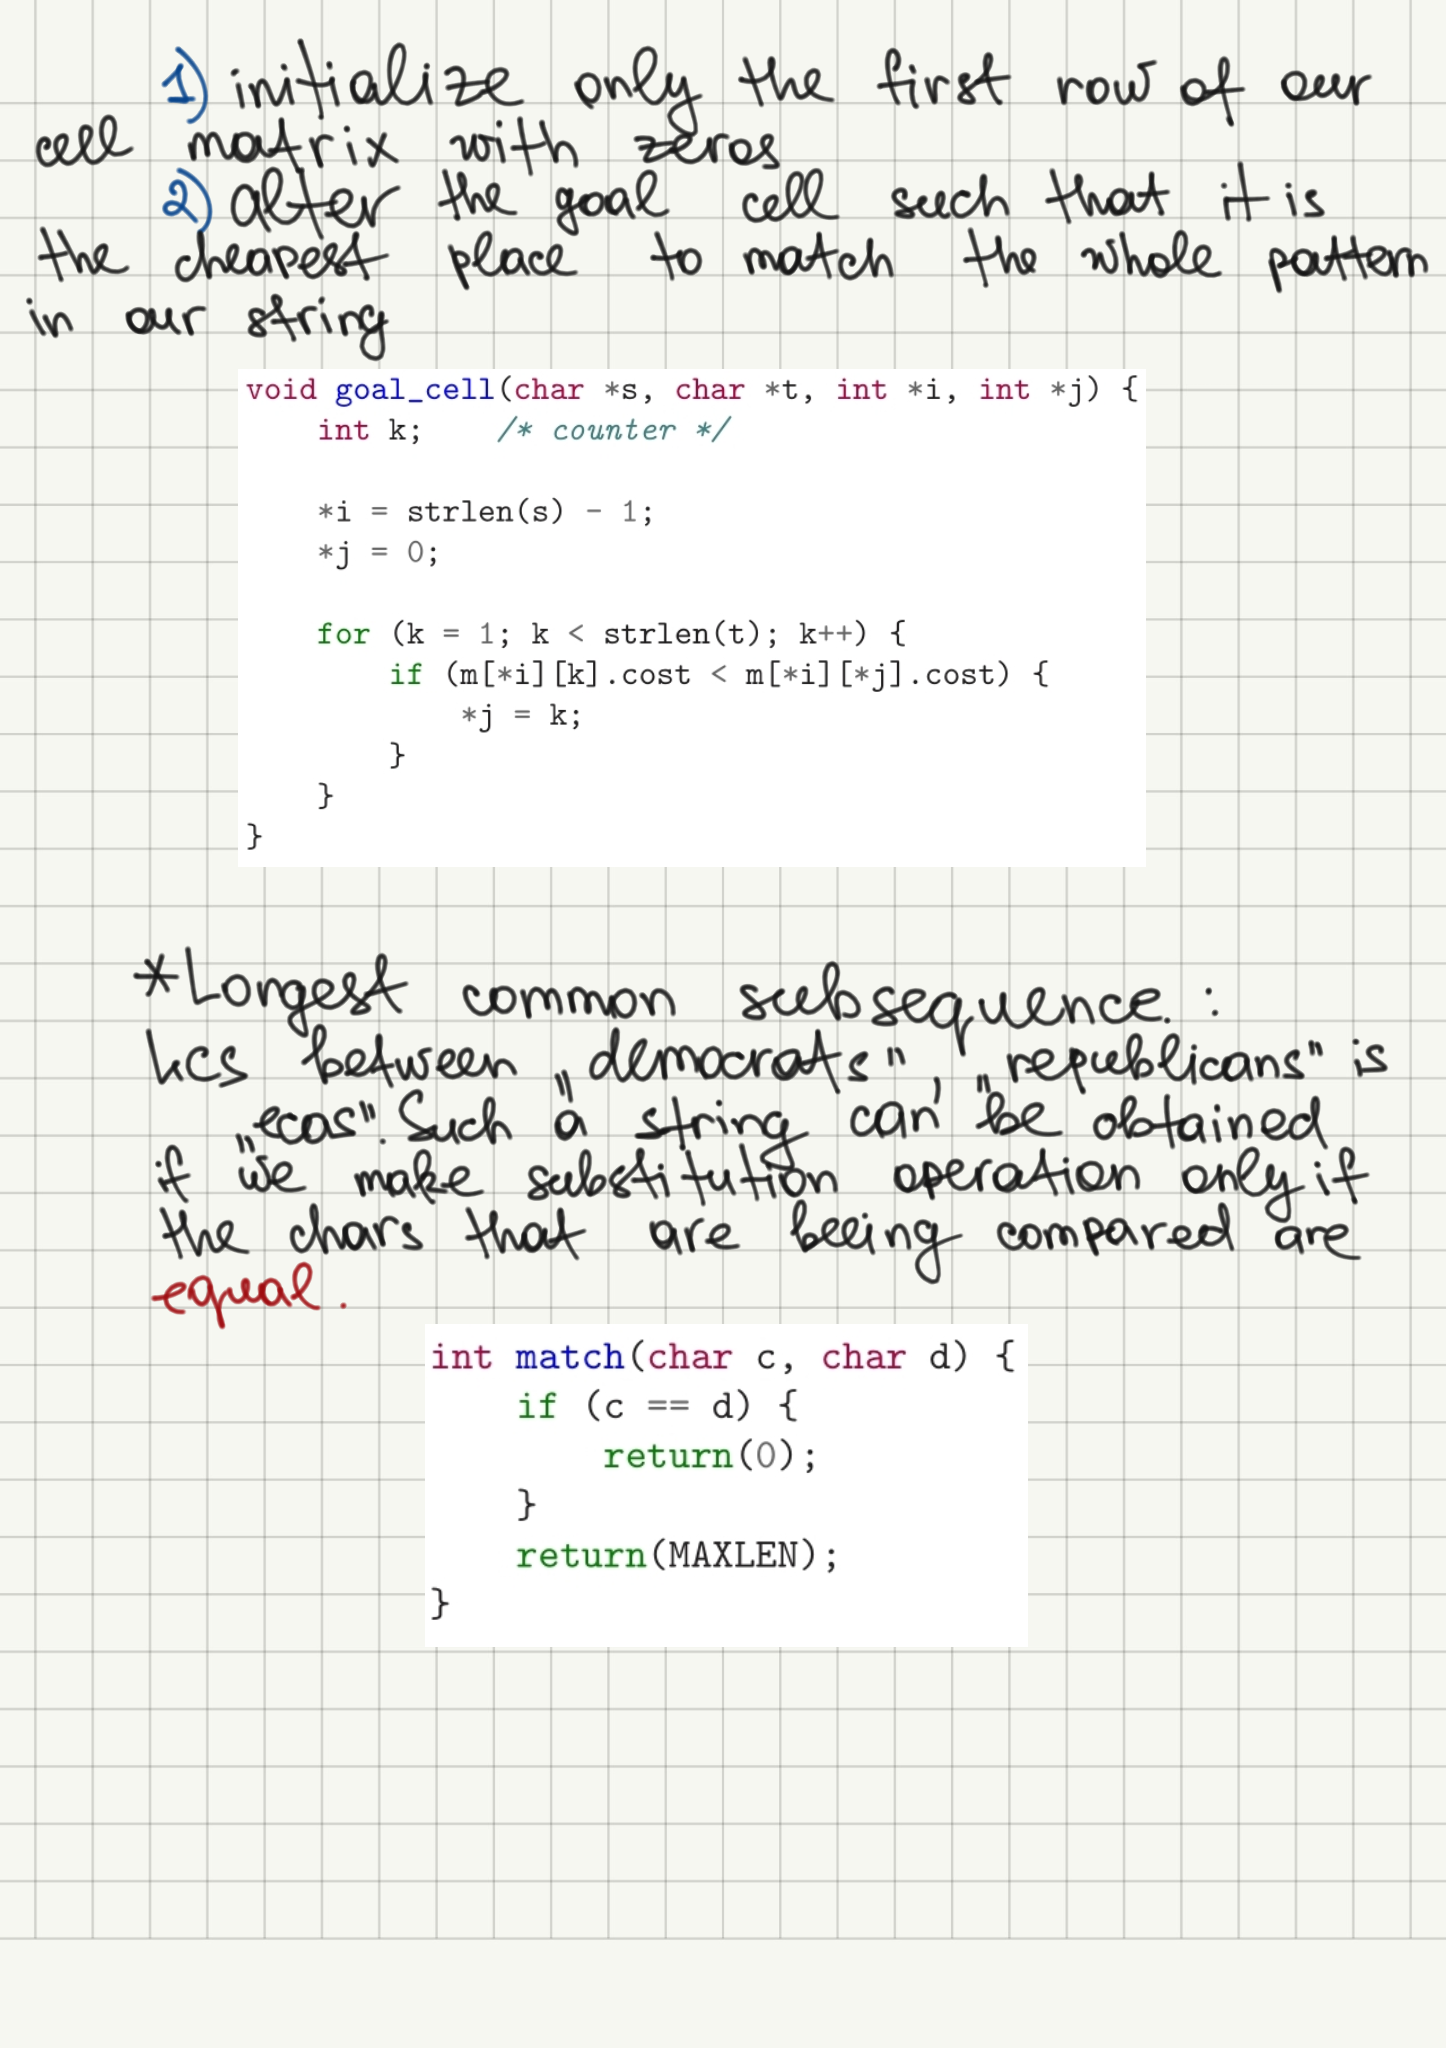 1) initialize only the first row of our
cell matrix with zeros
2) alter the goal cell such that it is
the cheapest place to match the whole pattern
in our string
void goal_cell(char *s, char *t, int *i, int *j) {
    int k;    /* counter */
    *i = strlen(s) - 1;
    *j = 0;
    for (k = 1; k < strlen(t); k++) {
        if (m[*i][k].cost < m[*i][*j].cost) {
            *j = k;
        }
    }
}
*Longest common subsequence.:
LCS between „democrats", „republicans" is
„ecas". Such a string can be obtained
if we make substitution operation only if
the chars that are beeing compared are
equal.
int match(char c, char d) {
    if (c == d) {
        return(0);
    }
    return(MAXLEN);
}